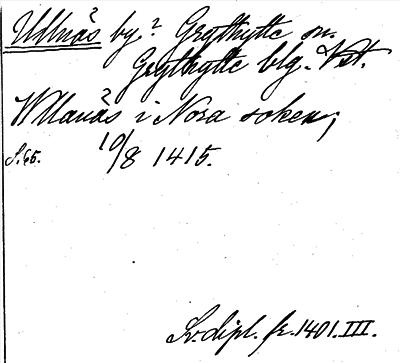 Ullnäs by? Grythytte sn.
Grythytte blg. Vst.
Wllanäs i Nora soken,
S. 65. 10/8 1415.
Sv. dipl. fr. 1401. III.